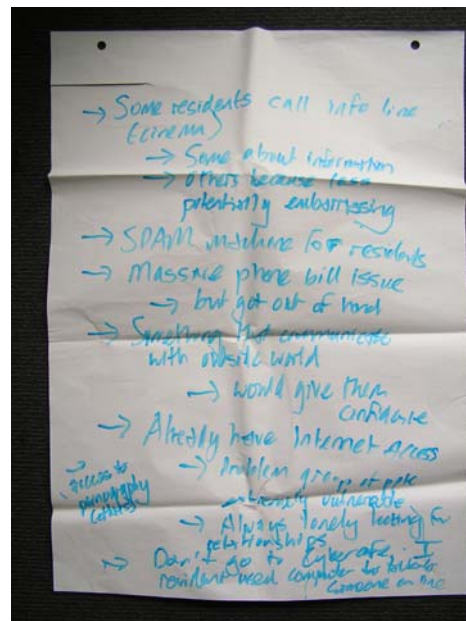 → Some residents call info line
(cinema)
→ Some about information
→ others because less
potentially embarrassing
→ SPAM machine for residents
→ Massive phone bill issue
→ but got out of hand
→ Something that communicates
with outside world
→ would give them
confidence
→ Already have Internet Access
→ Problem group of
extremely vulnerable
→ access to
pornography
→ Always lonely looking for
relationships
→ Don't go to Cybercafe, I
resident need computer to
someone on line